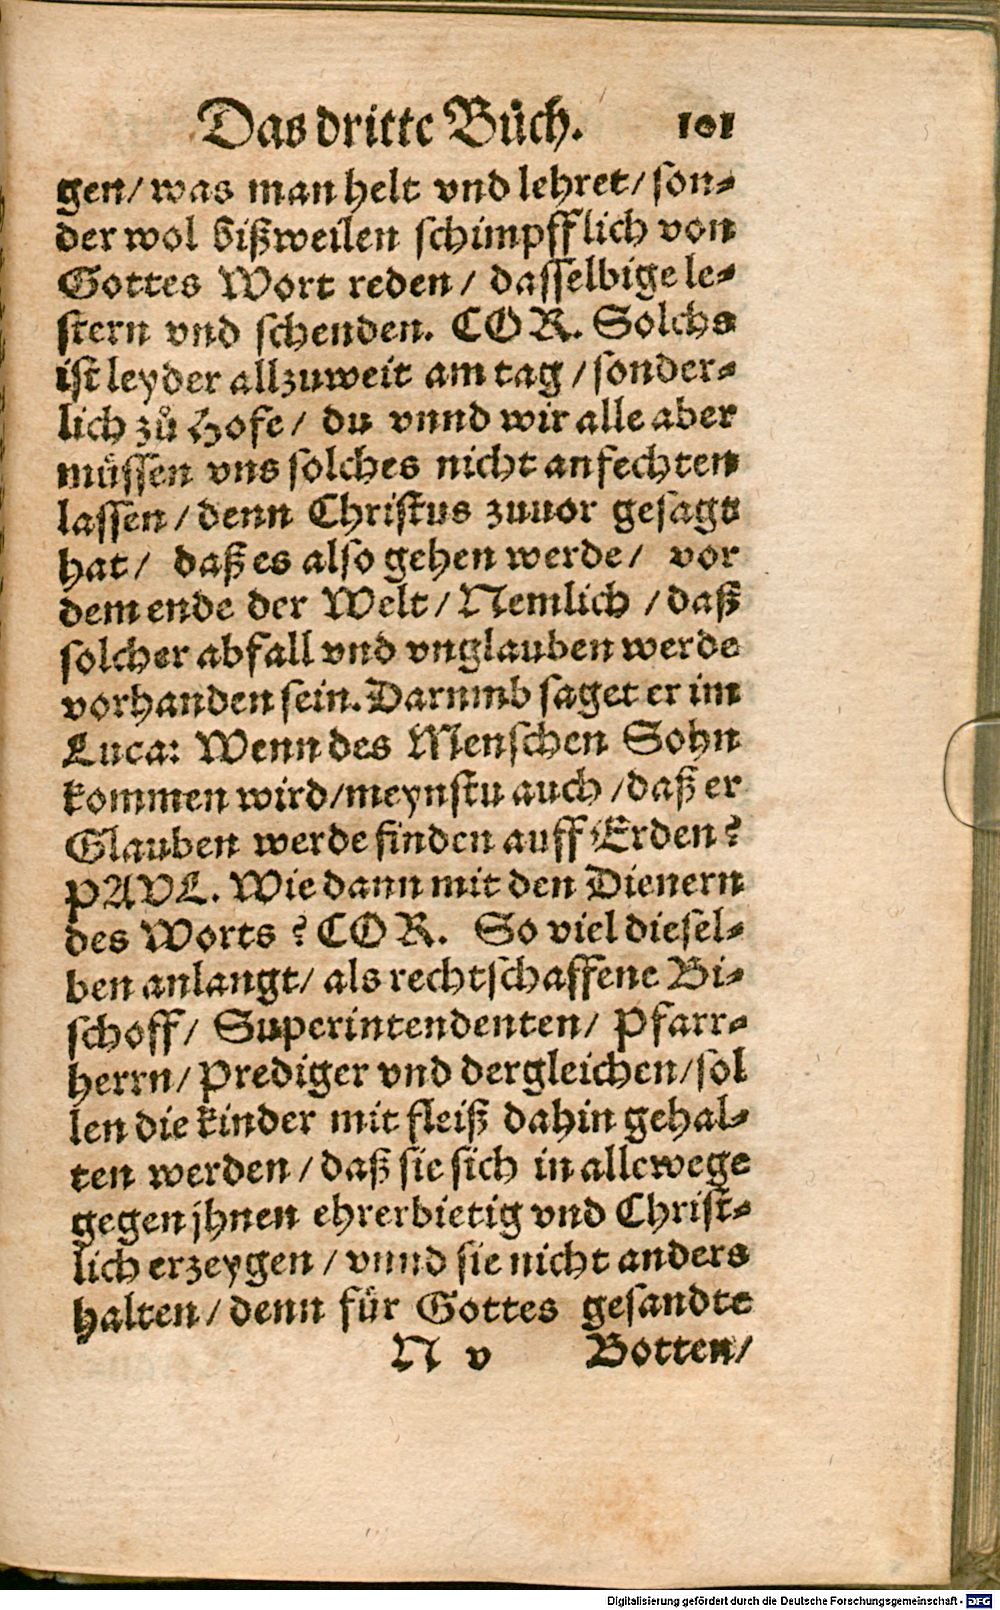 Das dritte Bůch. 101
gen/ was man helt vnd lehret/ son⸗
der wol bißweilen schimpfflich von
Gottes Wort reden/ dasselbige le⸗
stern vnd schenden. COR. Solchs
ist leyder allzuweit am tag/ sonder⸗
lich zů Hofe/ du vnnd wir alle aber
müssen vns solches nicht anfechten
lassen/ denn Christus zuuor gesagt
hat/ daß es also gehen werde/ vor
dem ende der Welt/ Nemlich/ daß
solcher abfall vnd vnglauben werde
vorhanden sein. Darumb saget er im
Luca: Wenn des Menschen Sohn
kommen wird/ meynstu auch/ daß er
Glauben werde finden auff Erden?
PAVL. Wie dann mit den Dienern
des Worts? COR. So viel diesel⸗
ben anlangt/ als rechtschaffene Bi⸗
schoff/ Superintendenten/ Pfarr⸗
herrn/ Prediger vnd dergleichen/ sol
len die kinder mit fleiß dahin gehal⸗
ten werden/ daß sie sich in allewege
gegen jhnen ehrerbietig vnd Christ⸗
lich erzeygen/ vnnd sie nicht anders
halten/ denn für Gottes gesandte
N v Botten/
Digitalisierung gefördert durch die Deutsche Forschungsgemeinschaft - DFG